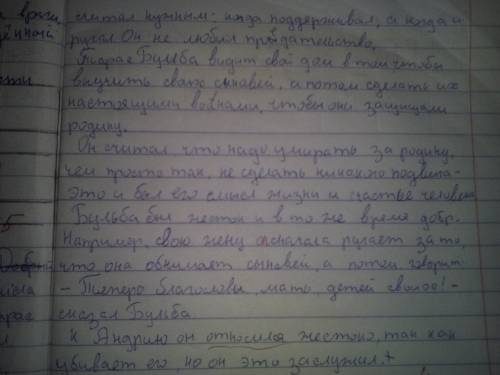 а враги, считал нужным: когда поддерживал, а когда и
ругал Он не любил предательство,
Тарас Бульба видит свой дом в том чтобы
выучить свою сыновей, а потом сделать их
настоящими воинами, чтобы они защищали
родину.
Он считал что надо умирать за родину,
чем просто так, не сделать никакого подвига-
это и был его смысл жизни и счастье человека
Бульба был жесток и в то же время добр.
Например, свою жену сначала ругает за то,
что она обнимает сыновей, а потом говорит
- Теперь благослови, мать, детей своих! -
сказал Бульба
К Андрию он относился жестоко, так как
убивает его, но он это заслужил.